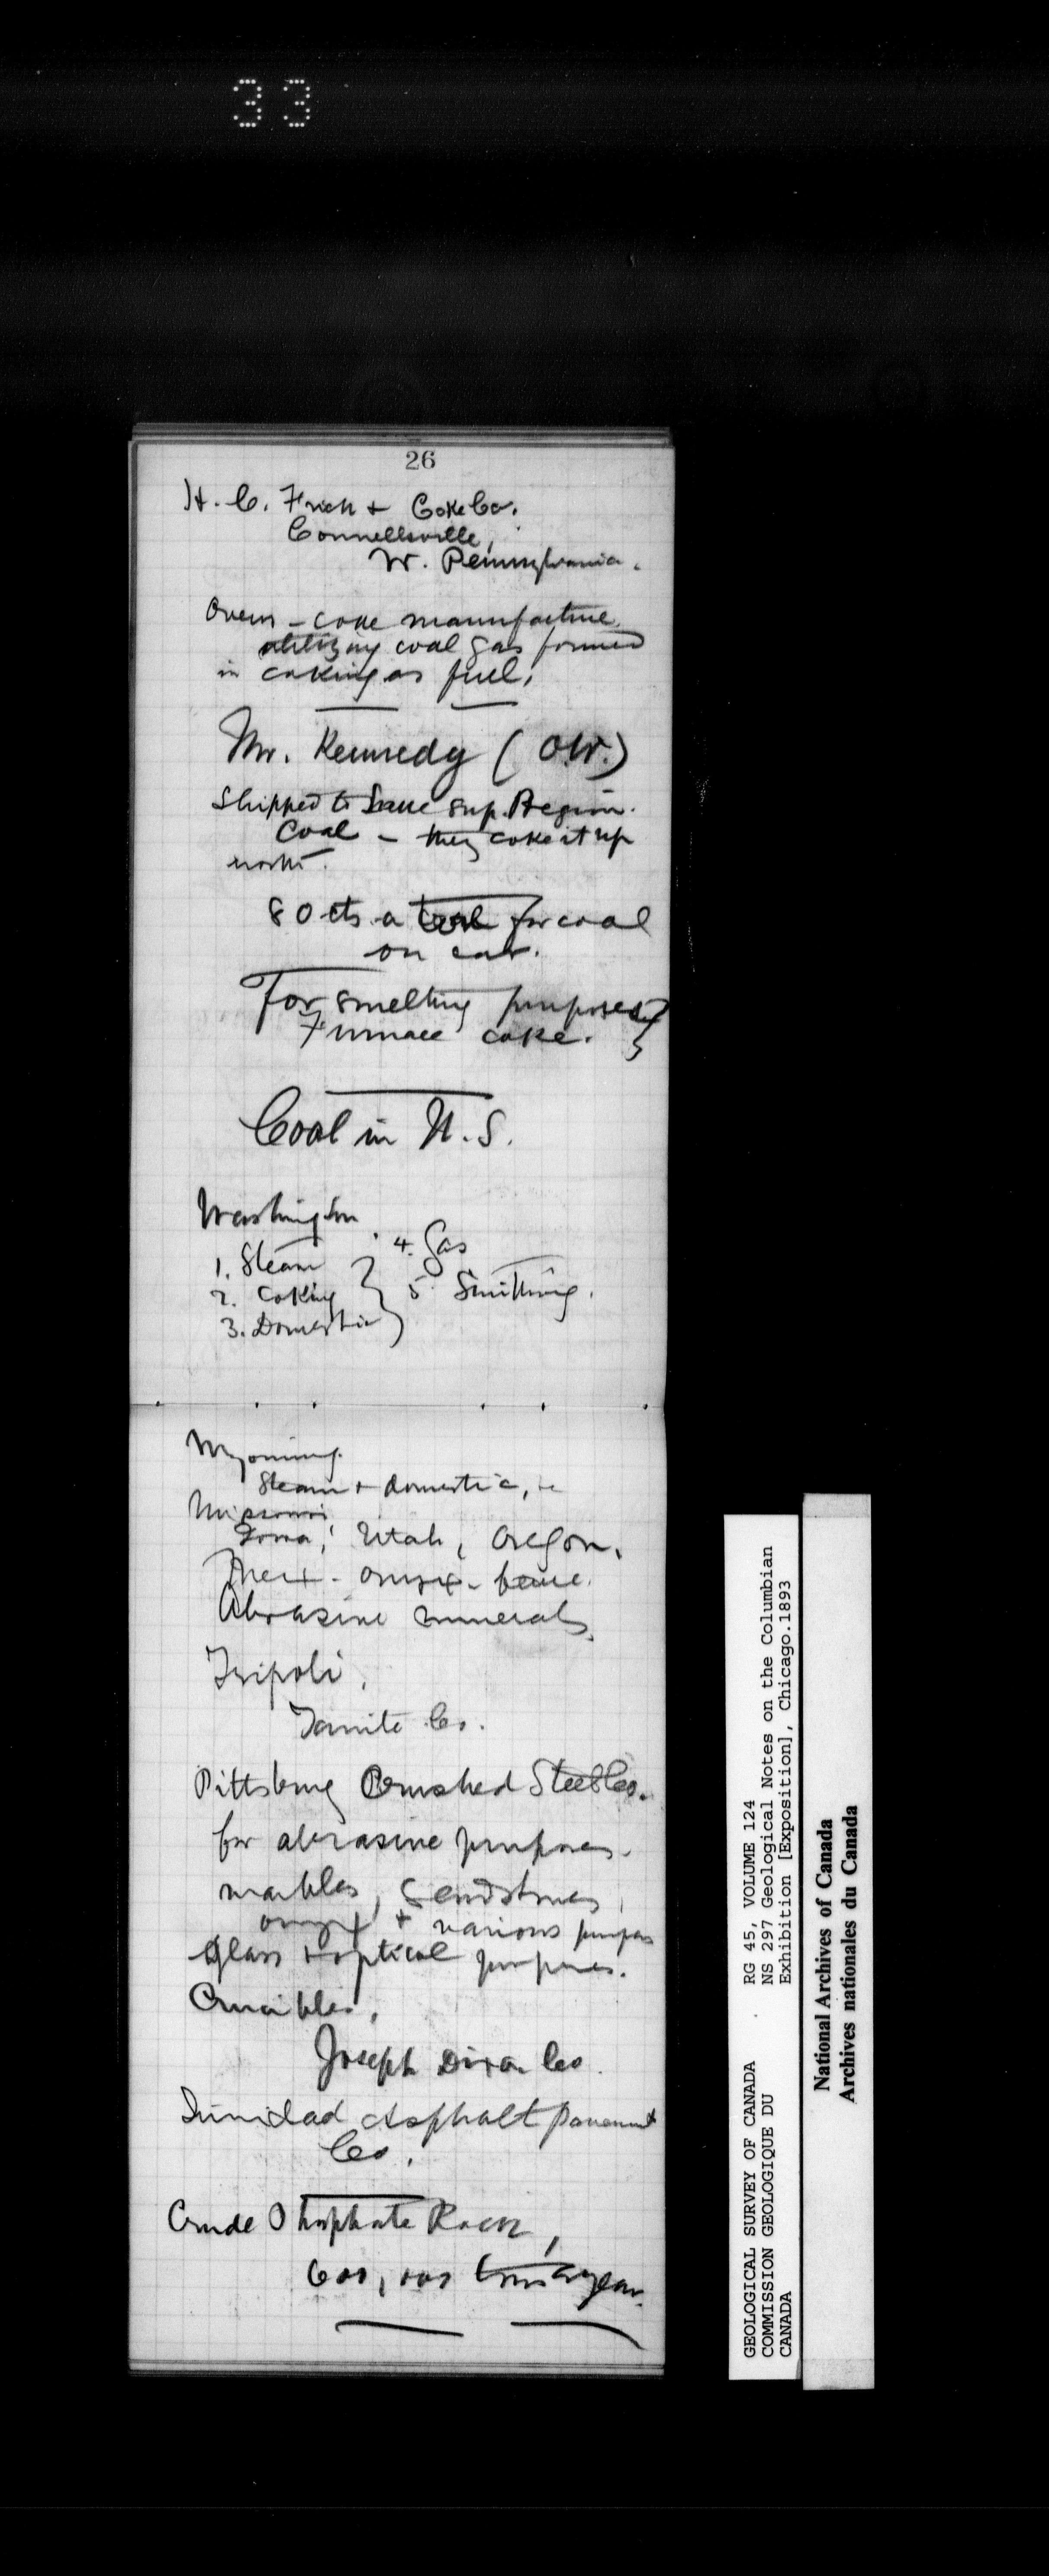 33
26
H. C. Frick + Coke Co.
Connellsville,
W. Pennsylvania.
Ovens - coke manufacture
utilizing coal gas formed
in coking as fuel.
Mr. Kennedy (O.W.)
Shipped to Lake Sup. Region.
Coal - they coke it up
north.
80 cts a for coal
on car.
For smelting purposes }
Furnace coke.
Coal in U.S.
Washington
1. Steam } 4. Gas
2. Coking 5. Smithing.
3. Domestic
Wyoming.
Steam + domestic,
Missouri
Iowa, Utah, Oregon.
onyx -
Abrasive minerals
Tripoli,
Tanite Co.
Pittsburg Crushed Steel Co.
for abrasive purposes.
marbles, Sandstones,
onyx + various purposes
Glass + optical purposes.
Crucibles,
Joseph Dixon Co.
Trinidad Asphalt Pavement
Co.
Crude Phosphate Rock,
600,000 tons a year.
GEOLOGICAL SURVEY OF CANADA RG 45, VOLUME 124
COMMISSION GEOLOGIQUE DU NS 297 Geological Notes on the Columbian
CANADA Exhibition [Exposition], Chicago.1893
National Archives of Canada
Archives nationales du Canada